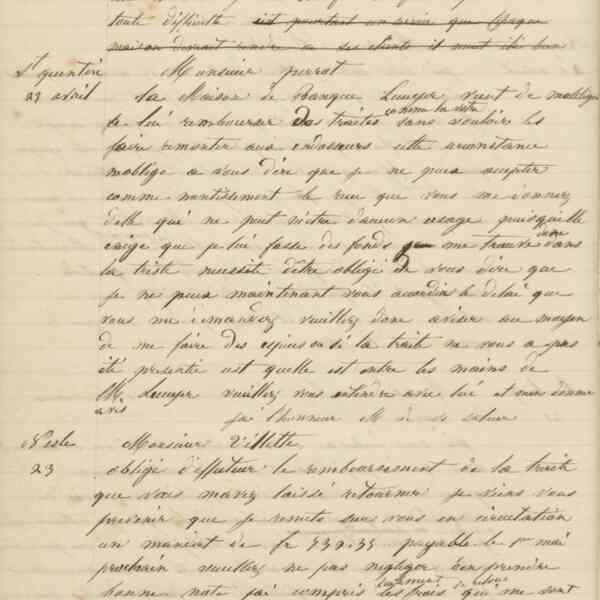 toute difficulté est pourtant un service que chaque
maison devrait rendre a ses clients il m'eut été bon
St quentin Monsieur perrot
23 avril la Maison de Banque Lecuyer vient de m'obliger
de lui rembourser des traites comme la votre sans vouloir les
faire remonter aux endosseurs cette circonstance
m'oblige a vous dire que je ne puis accepter
comme nantissement le reçu que vous me donnez
d'elle qui ne peut m'etre d'aucun usage puisqu'elle
exige que je lui fasse des fonds je me trouve donc dans
la triste necessité d'être obligé de vous dire que
je ne peux maintenant vous accorder le delai que
vous me demandez veuillez donc aviser au moyen
de me faire des especes ou si la traite ne vous a pas
été presentée est quelle est entre les mains de
M. Lecuyer veuillez vous entendre avec lui et m'en donner
avis
j'ai l'honneur M de vs saluer
Nesle Monsieur Villette
23 obligé d'effectuer le remboursement de la traite
que vous m'avez laissé retourner je viens vous
prevenir que je remets sur vous en circulation
un mandat de fr 739.55 payable le 1er mai
prochain veuillez ne pas negliger d'en prendre
bonne note j'ai compris les frais de retour qui me sont